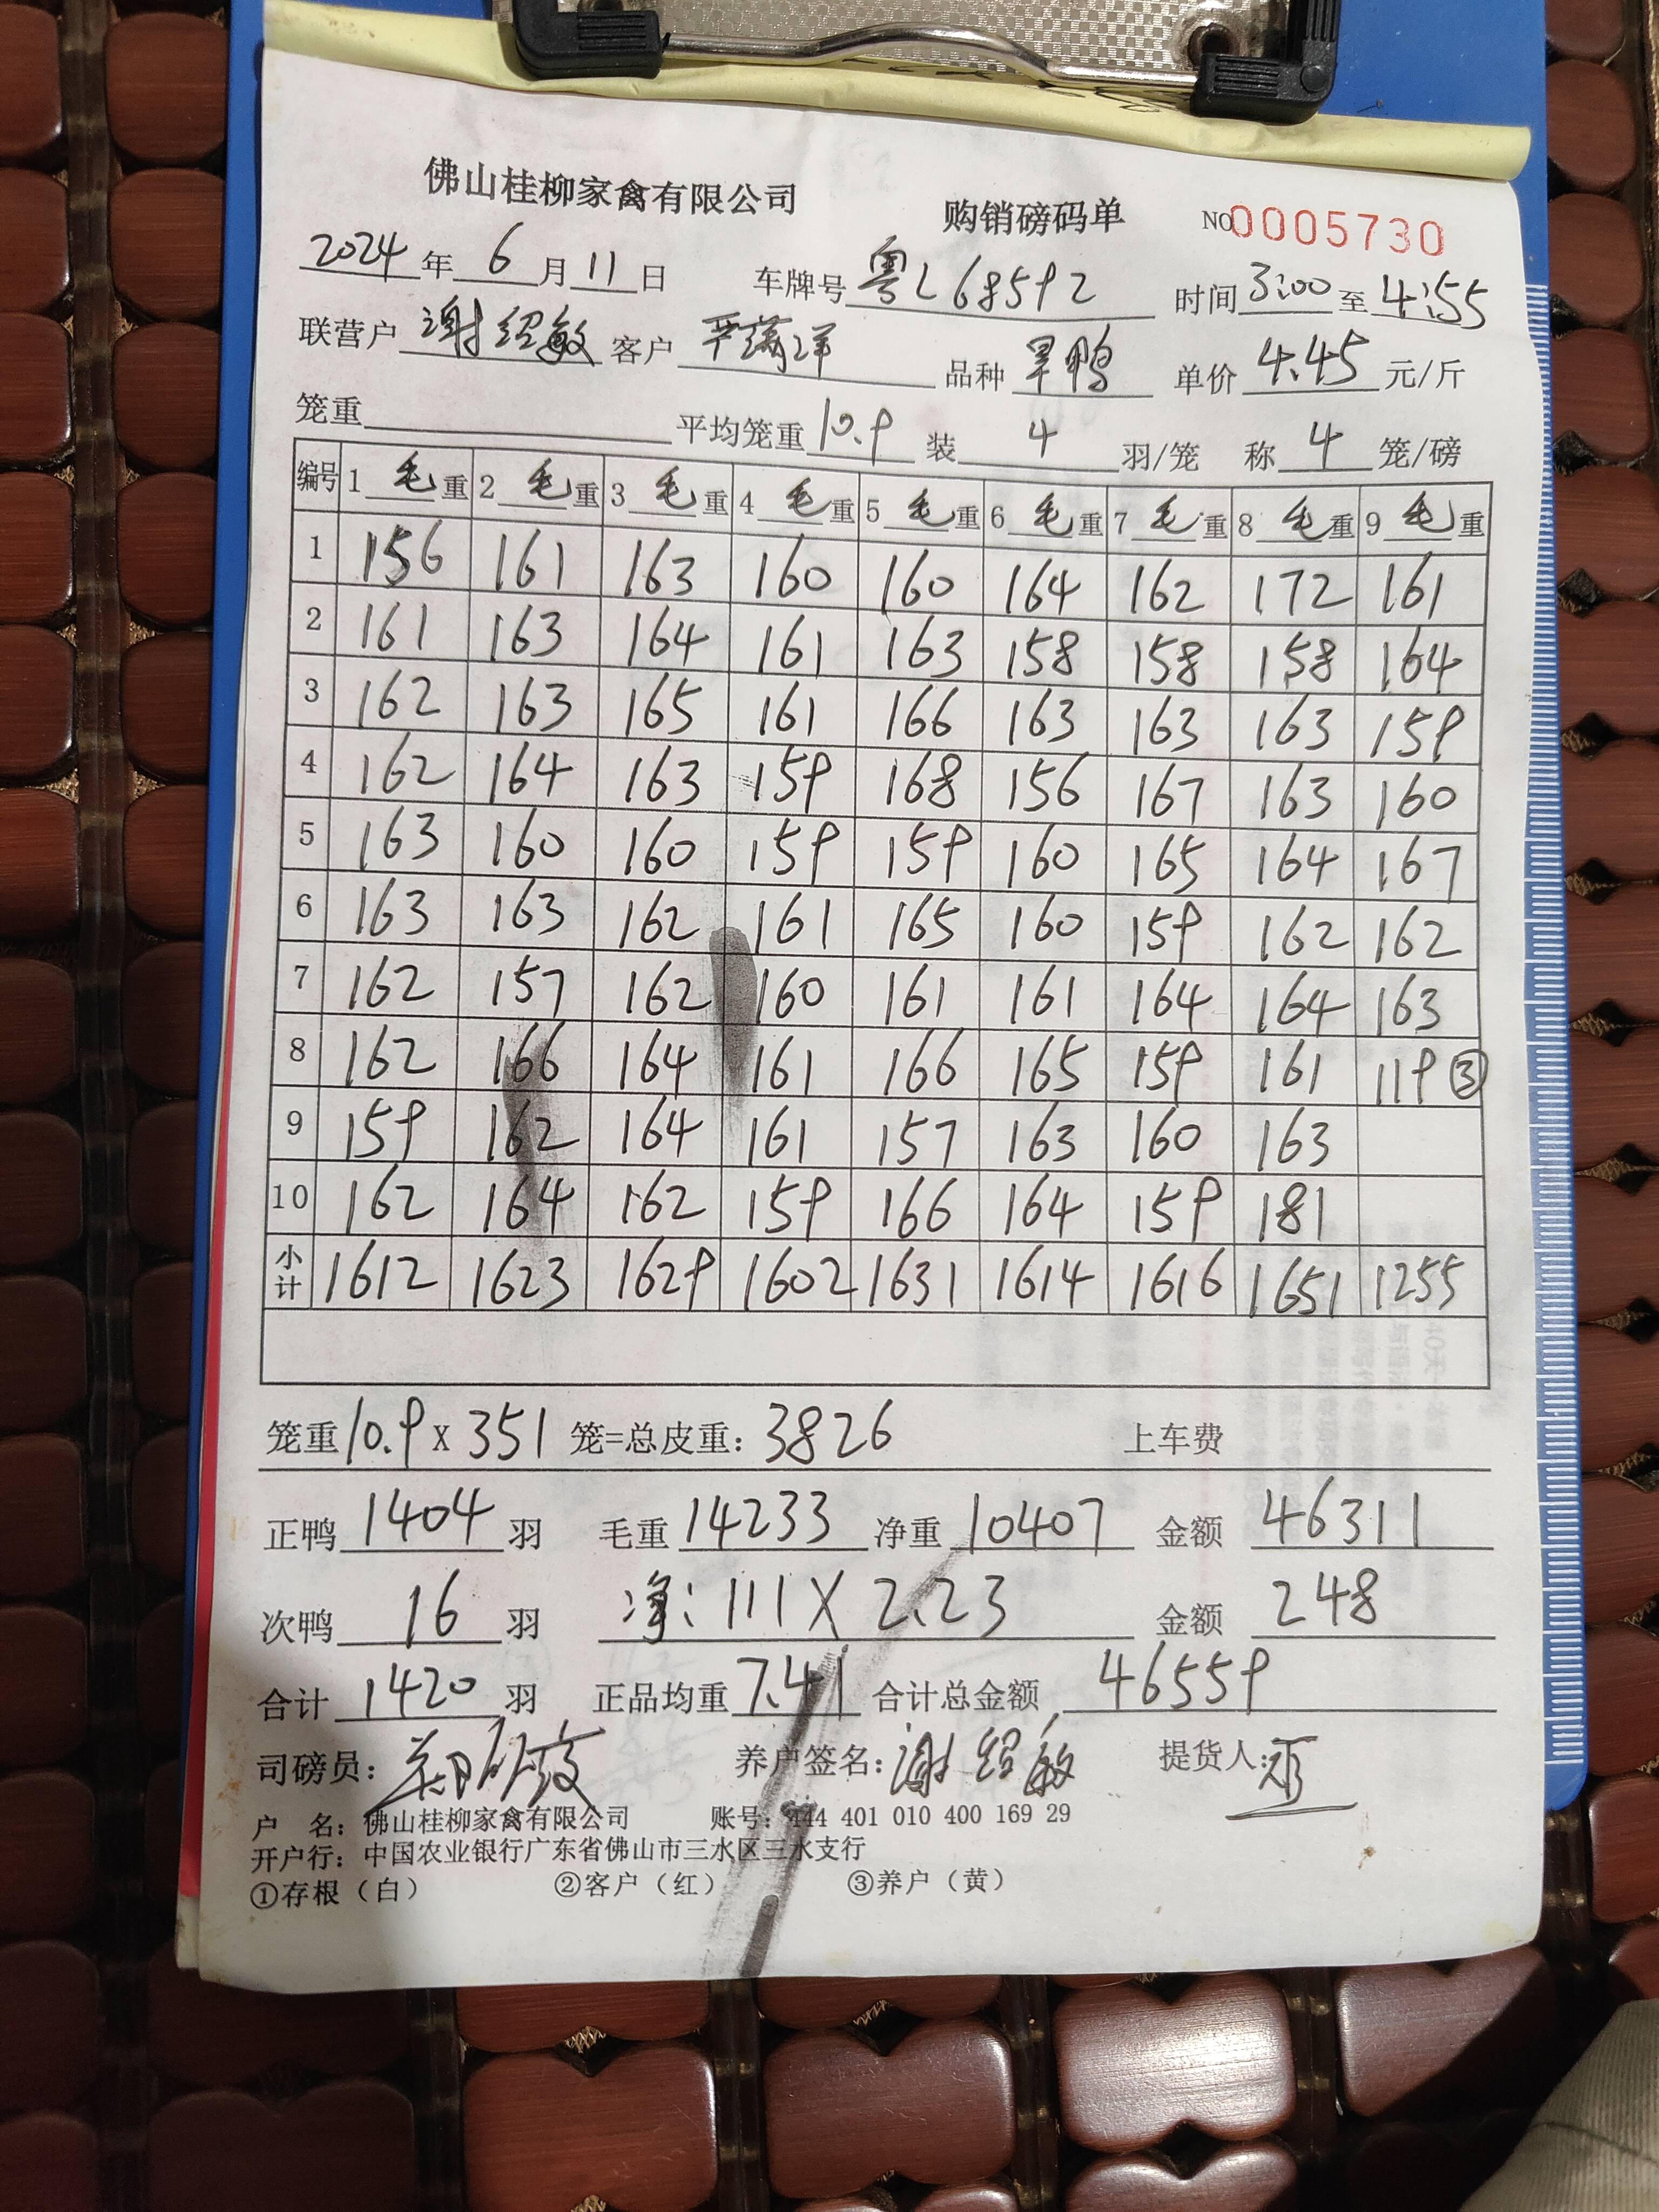 佛山桂柳家禽有限公司 购销磅码单 NO 0005730
2024年6月11日 车牌号 粤L68592 时间3:00至4:55
联营户 谢绍敏 客户 品种 旱鸭 单价 4.45 元/斤
笼重 平均笼重 10.9 装 4 羽/笼 称 4 笼/磅
编号 1 毛重 2 毛重 3 毛重 4 毛重 5 毛重 6 毛重 7 毛重 8 毛重 9 毛重
1 156 161 163 160 160 164 162 172 161
2 161 163 164 161 163 158 158 158 164
3 162 163 165 161 166 163 163 163 159
4 162 164 163 159 168 156 167 163 160
5 163 160 160 159 159 160 165 164 167
6 163 163 162 161 165 160 159 162 162
7 162 157 162 160 161 161 164 164 163
8 162 166 164 161 166 165 159 161 119 ③
9 159 162 164 161 157 163 160 163
10 162 164 162 159 166 164 159 181
小计 1612 1623 1629 1602 1631 1614 1616 1651 1255
笼重10.9 X 351 笼=总皮重：3826 上车费
正鸭 1404 羽 毛重 14233 净重 10407 金额 46311
次鸭 16 羽 净：111 X 2.23 金额 248
合计 1420 羽 正品均重 7.41 合计总金额 46559
司磅员： 养户签名：谢绍敏 提货人：
户 名：佛山桂柳家禽有限公司 账号：444 401 010 400 169 29
开户行：中国农业银行广东省佛山市三水区三水支行
①存根（白） ②客户（红） ③养户（黄）